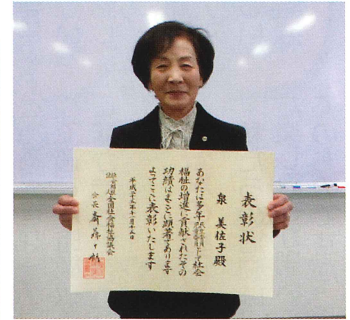 表彰状
泉 美佐子殿
あなたは多年
として社会
福祉の増進に貢献されたその
功績はまことに顕著であります
よってここに表彰いたします
平成二十五年十一月十五日
全国社会福祉協議会
会長 斎藤十朗